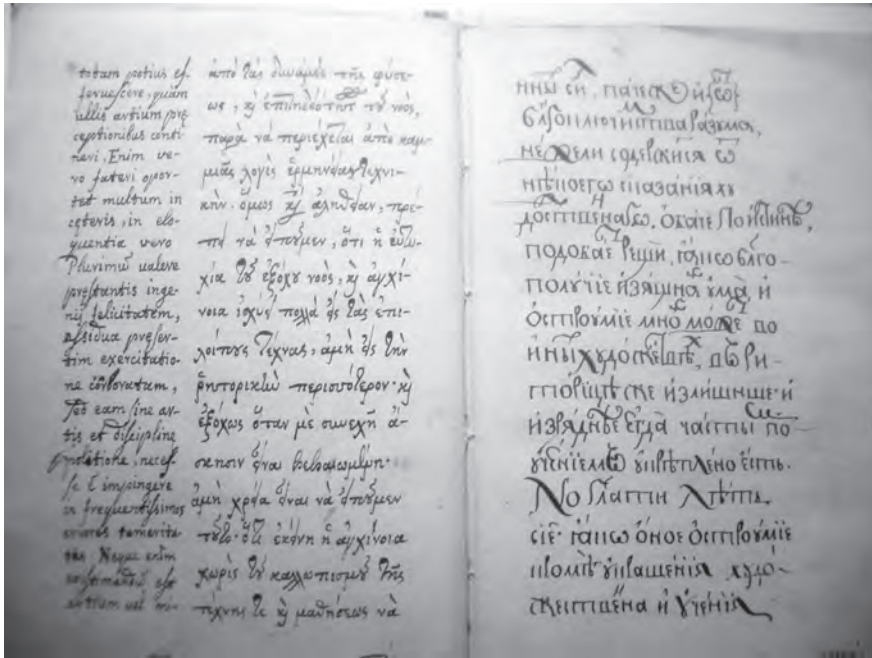 totam potius ef-
fervescere, quàm
ullis artium prę
ceptionibus conti
neri. Enim ve-
ro fateri opor-
tet multum in
cęteris, in elo-
quentia vero
Plurimũ valere
pręstantis inge-
nij felicitatem,
assidua pręser-
tim exercitatio-
ne corroboratam,
sed eam sine ar-
tis et disciplinę
politione, neces-
se ẽ impingere
in frequentissimos
errores temerita-
tis. Neque enim
existimandũ est
artium vel mi-
ἀπὸ τὰς δυνάμεις τῆς φύσε-
ως, κὶ ἐπιτηδειότητα τοῦ νοός,
παρὰ νὰ περιέχεται ἀπὸ καμ-
μίας λογῆς ἑρμηνείαν τεχνι-
κὴν. ὅμως κὶ ἀλήθειαν, πρέ-
πει νὰ εἰποῦμεν, ὅτι ἡ εὐτυ-
χία τοῦ ἐξόχου νοὸς, κὶ ἀγχί-
νοια ἰσχύει πολλὰ εἰς τὰς ἐπι-
λοίπους τέχνας, ἀμὴ εἰς τὴν
ῥητορικὴν περισσότερον· κὶ
ἐξόχως ὅταν μὲ συνεχῆ ἄ-
σκησιν εἶναι βεβαιωμένη·
ἀμὴ χρεία εἶναι νὰ εἰποῦμεν
τοῦτο· ὅτι ἐκείνη ἡ ἀγχίνοια
χωρὶς τοῦ καλλωπισμοῦ τῆς
τέχνης τε κὶ μαθήσεως νὰ
паче же и {ѿ}
разума,
неже́ли содержи́тся ѿ
нѣ́коегѡ сказа́нїѧ ху
до́жественнагѡ. Ѻба́че по и́стинѣ,
подоба́етъ рещѝ, ꙗ́кѡ благо-
полу́чїе изѧ́щнагѡ ума̀, и
ѻстроу́мїе мно́гѡ мо́жетъ во
и́ныхъ худо́жествѣхъ, въ ри-
тѻ́рицѣ же изли́шнше· и
изрѧ́днѣе егда̀ ча́стымъ по-
уче́нїемъ укрѣпле́но є́сть.
Но глаго́лати лѣ́ть
сїѐ· ꙗ́кѡ ѻ́ное ѻстроу́мїе
кромѣ̀ украше́нїѧ худо́-
жественна и уче́нїѧ